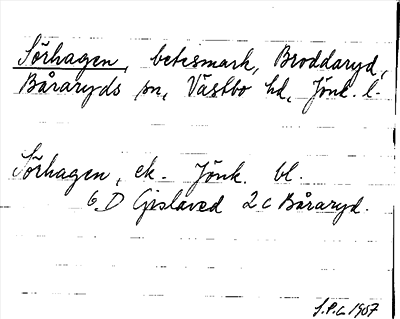 Sörhagen, betesmark, Broddaryd,
Båraryds sn, Västbo hd, Jönk. l.
Sörhagen, ek. Jönk. bl.
6 D Gislaved 2 c Båraryd.
1967